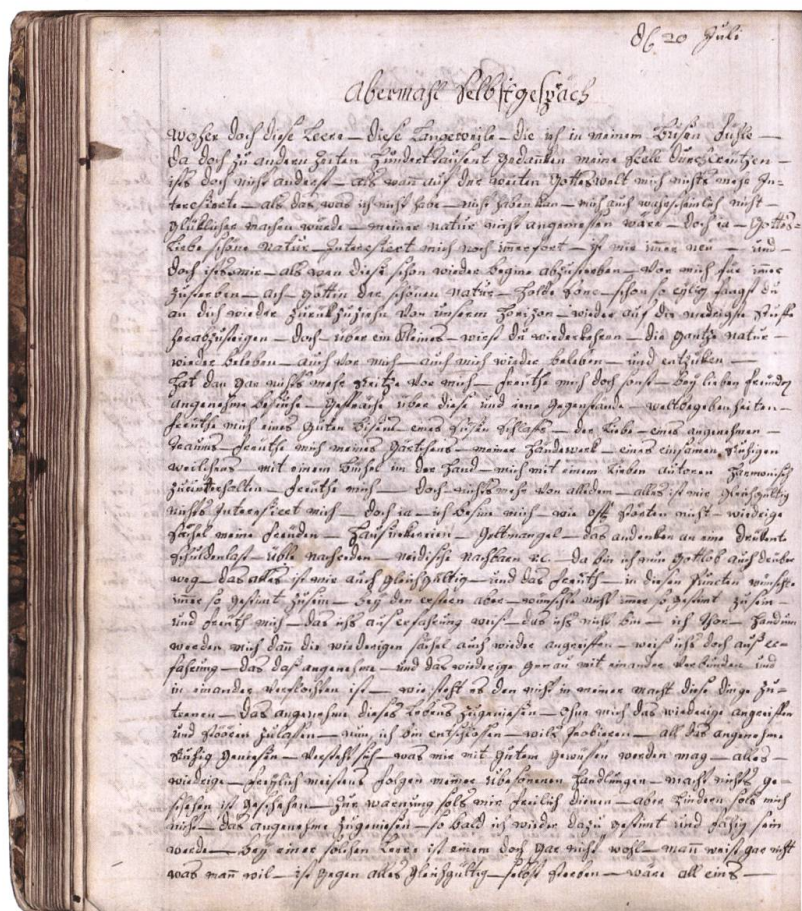 d 20 Juli
Abermahl Selbstgespräch
woher doch diese Leere — diese Langeweile — die ich in meinem Busen fühle —
da doch zu andern Zeiten hundert tausent gedanken meine Seele durchkreutzen —
ists doch nicht anderst — als wan auf der weiten Gottes welt mich nichts mehr In=
teresierte — als das was ich nicht habe — nicht haben kan — mich auch wahrscheinlich nicht —
glüklicher machen würde — meiner natur nicht angemessen wäre — doch ia — Gottes=
liebe schöne Natur — Interesiert mich noch imerfort — ist mir imer neu — und —
doch ists mir — als wan diese schon wieder begine abzusterben — vor mich für imer
zusterben — ach — göttin der schönen natur — holde Sone — schon so eylig fangst du
an dich wieder zurükzuziehn von unserem Horizon — wieder auf die niedrigste Stuffe
herabzusteigen — doch — über ein kleines — wirst du wiederkehren — die gantze natur —
wieder beleben — auch vor mich — auch mich wieder beleben — und entzüken —
hat dan gar nichts mehr Reitze vor mich — freuthe mich doch sonst — bey lieben freunden
angenehme besuche — gespräche über diese und iene gegenstände — weltbegebenheiten —
freuthe mich eines guten bissens eines süssen schlafs — der liebe — eines angenehmen —
traums — freuthe mich meines gärtchens — meiner handwerk — eines einsamen Ruhigen
weilchens — mit einem buchel in der hand — mich mit einem lieben autoren harmonisch
zuunterhalten — freuthe mich — doch — nichts mehr von alledem — alles ist mir gleichgültig
nichts Interesiert mich — doch ia — ich besine mich — wie oft störten nicht — wiedrige
sachen meine freuden — Haushkereien — geltmangel — das andenken an eine drükente
schuldenlast — üble nachreden — neidische nachbarn &c. da bin ich nun gotlob auch drüber
weg — das alles ist mir auch gleichgültig — und das freuth — in diesen puncten wünscht
imer so gestimt zusein — bey den ersten aber — wünschte nicht imer so gestimt zu sein —
und freuth mich — das ichs aus erfahrung weis — das ichs nicht bin — ich Thor — handum
werden mich dan die wiedrigen sachen auch wieder angreiffen — weis ichs doch aus er=
fahrung — das das angenehme — und das wiedrige genau mit einander verbunden und
in einander verflochten ist — wie steht es den nicht in meiner macht diese dinge zu=
trenen — das angenehme dieses lebens zugeniesen — ohne mich das wiedrige angreiffen
und stören zulassen — nun, ich bin entschlossen — wils probieren — all das angenehme
Ruhig geniesen — versteht sich — was mir mit gutem gewüssen werden mag — alles —
wiedrige — freylich meistens folgen meiner übersonenen handlungen — macht nichts ge=
schehen ist geschehen — zur warnung sols mir freilich dienen — aber hindern sols mich
nicht — das angenehme zugeniesen — so bald ich wieder dazu gestimt und fähig sein
werde — bey einer solchen Leere ist einem doch gar nicht wohl — man weist gar nicht
was man wil — ist gegen alles gleichgültig — selbst sterben — wäre all eins —